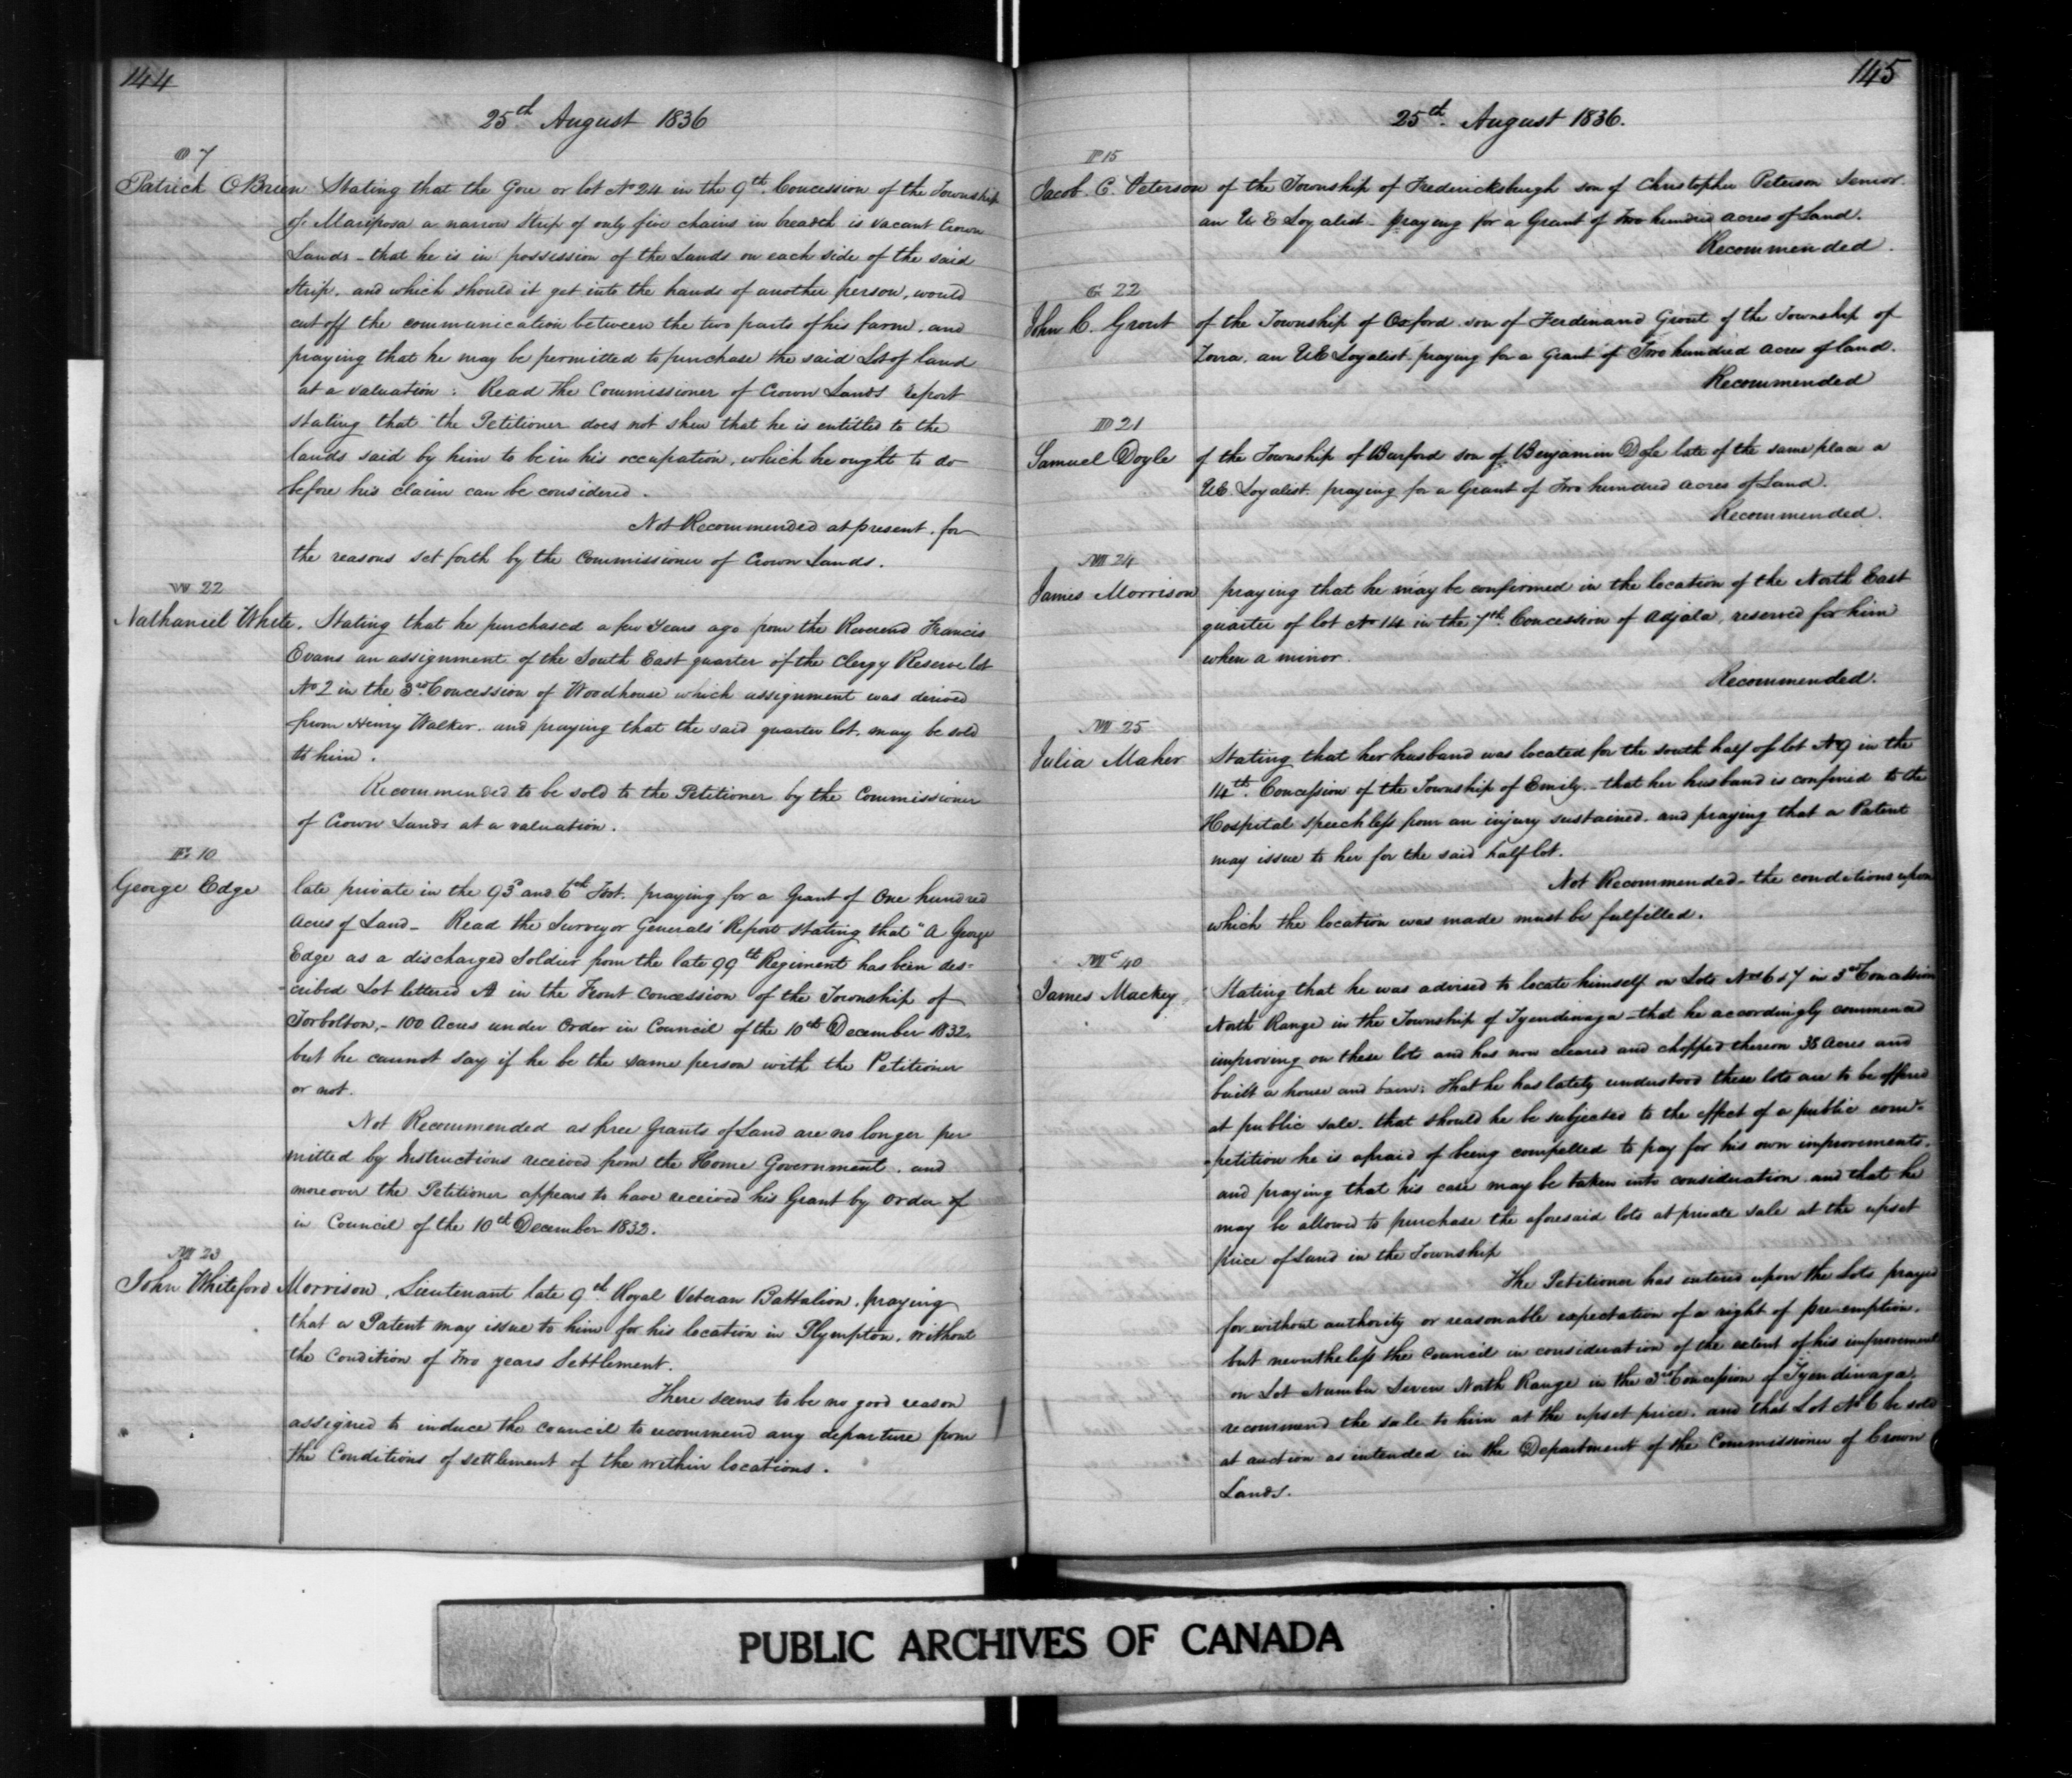 144
25th August 1836
O 7
Patrick O'Brien Stating that the Gore or lot No 24 in the 9th Concession of the Township
of Mariposa a narrow Strip of only five chains in breadth is vacant Crown
Lands - that he is in possession of the Lands on each side of the said
Strip. and which should it get into the hands of another person, would
cut off the communication between the two parts of his farm. and
praying that he may be permitted to purchase the said Lot of land
at a valuation: Read the Commissioner of Crown Lands report
stating that "the Petitioner does not shew that he is entitled to the
lands said by him to be in his occupation, which he ought to do
before his claim can be considered.
Not Recommended at present, for
the reasons set forth by the Commissioner of Crown Lands.
W 22
Nathaniel White, Stating that he purchased a few Years ago from the Reverend Francis
Evans an assignment of the South East quarter of the Clergy Reserve lot
No 2 in the 3rd Concession of Woodhouse which assignment was derived
from Henry Walker. and praying that the said quarter lot. may be sold
to him.
Recommended to be sold to the Petitioner by the Commissioner
of Crown Lands at a valuation.
E 10
George Edge late private in the 93d and 6th Foot. praying for a Grant of One hundred
Acres of Land - Read the Surveyor Generals' Report stating that "A George
Edge as a discharged Soldier from the late 99th Regiment has been des-
cribed Lot lettered A in the Front Concession of the Township of
Torbolton, - 100 Acres under Order in Council of the 10th December 1832.
but he cannot say if he be the same person with the Petitioner
or not.
Not Recommended as free Grants of Land are no longer per
mitted by Instructions received from the Home Government. and
moreover the Petitioner appears to have received his Grant by order of
in Council of the 10th December 1832.
M 23
John Whiteford Morrison, Lieutenant late 9th Royal Veteran Battalion, praying
that a Patent may issue to him for his location in Plympton. without
the Condition of two years Settlement.
There seems to be no good reason
assigned to induce the Council to recommend any departure from
the Conditions of settlement of the within locations.
145
25th August 1836.
P 15
Jacob C. Peterson of the Township of Fredericksburgh son of Christopher Peterson Senior
an U E Loyalist praying for a Grant of Two hundred acres of Land.
Recommended.
G 22
John C. Grout of the Township of Oxford son of Ferdinand Grout of the Township of
Zorra, an UE Loyalist praying for a Grant of Two hundred acres of land.
Recommended
D 21
Samuel Doyle of the Township of Burford son of Benjamin Doyle late of the same place a
UE Loyalist praying for a Grant of Two hundred acres of Land.
Recommended.
M 24
James Morrison praying that he may be confirmed in the location of the North East
quarter of lot No 14 in the 7th Concession of Adjala, reserved for him
when a minor.
Recommended.
M 25
Julia Maher Stating that her husband was located for the south half of lot No 9 in the
14th Concession of the Township of Emily. - that her husband is confined to the
Hospital speechless from an injury sustained. and praying that a Patent
may issue to her for the said half lot.
Not Recommended - the conditions upon
which the location was made must be fulfilled.
Mc 40
James Mackey Stating that he was advised to locate himself on Lots Nos 6 & 7 in 3rd Concession
North Range in the Township of Tyendinaga - that he accordingly commenced
improving on these lots and has now cleared and chopped thereon 38 Acres and
built a house and barn; that he has lately understood these lots are to be offered
at public sale. that should he be subjected to the effect of a public com-
petition he is afraid of being compelled to pay for his own improvements.
and praying that his case may be taken into consideration and that he
may be allowed to purchase the aforesaid lots at private sale at the upset
price of Land in the Township
The Petitioner has entered upon the Lots prayed
for without authority or reasonable expectation of a right of pre-emption.
but nevertheless the Council in consideration of the extent of his improvement
on Lot Number Seven North Range in the 3rd Concession of Tyendinaga,
recommend the sale to him at the upset price. and that Lot No 6 be sold
at auction as intended in the Department of the Commissioner of Crown
Lands.
PUBLIC ARCHIVES OF CANADA